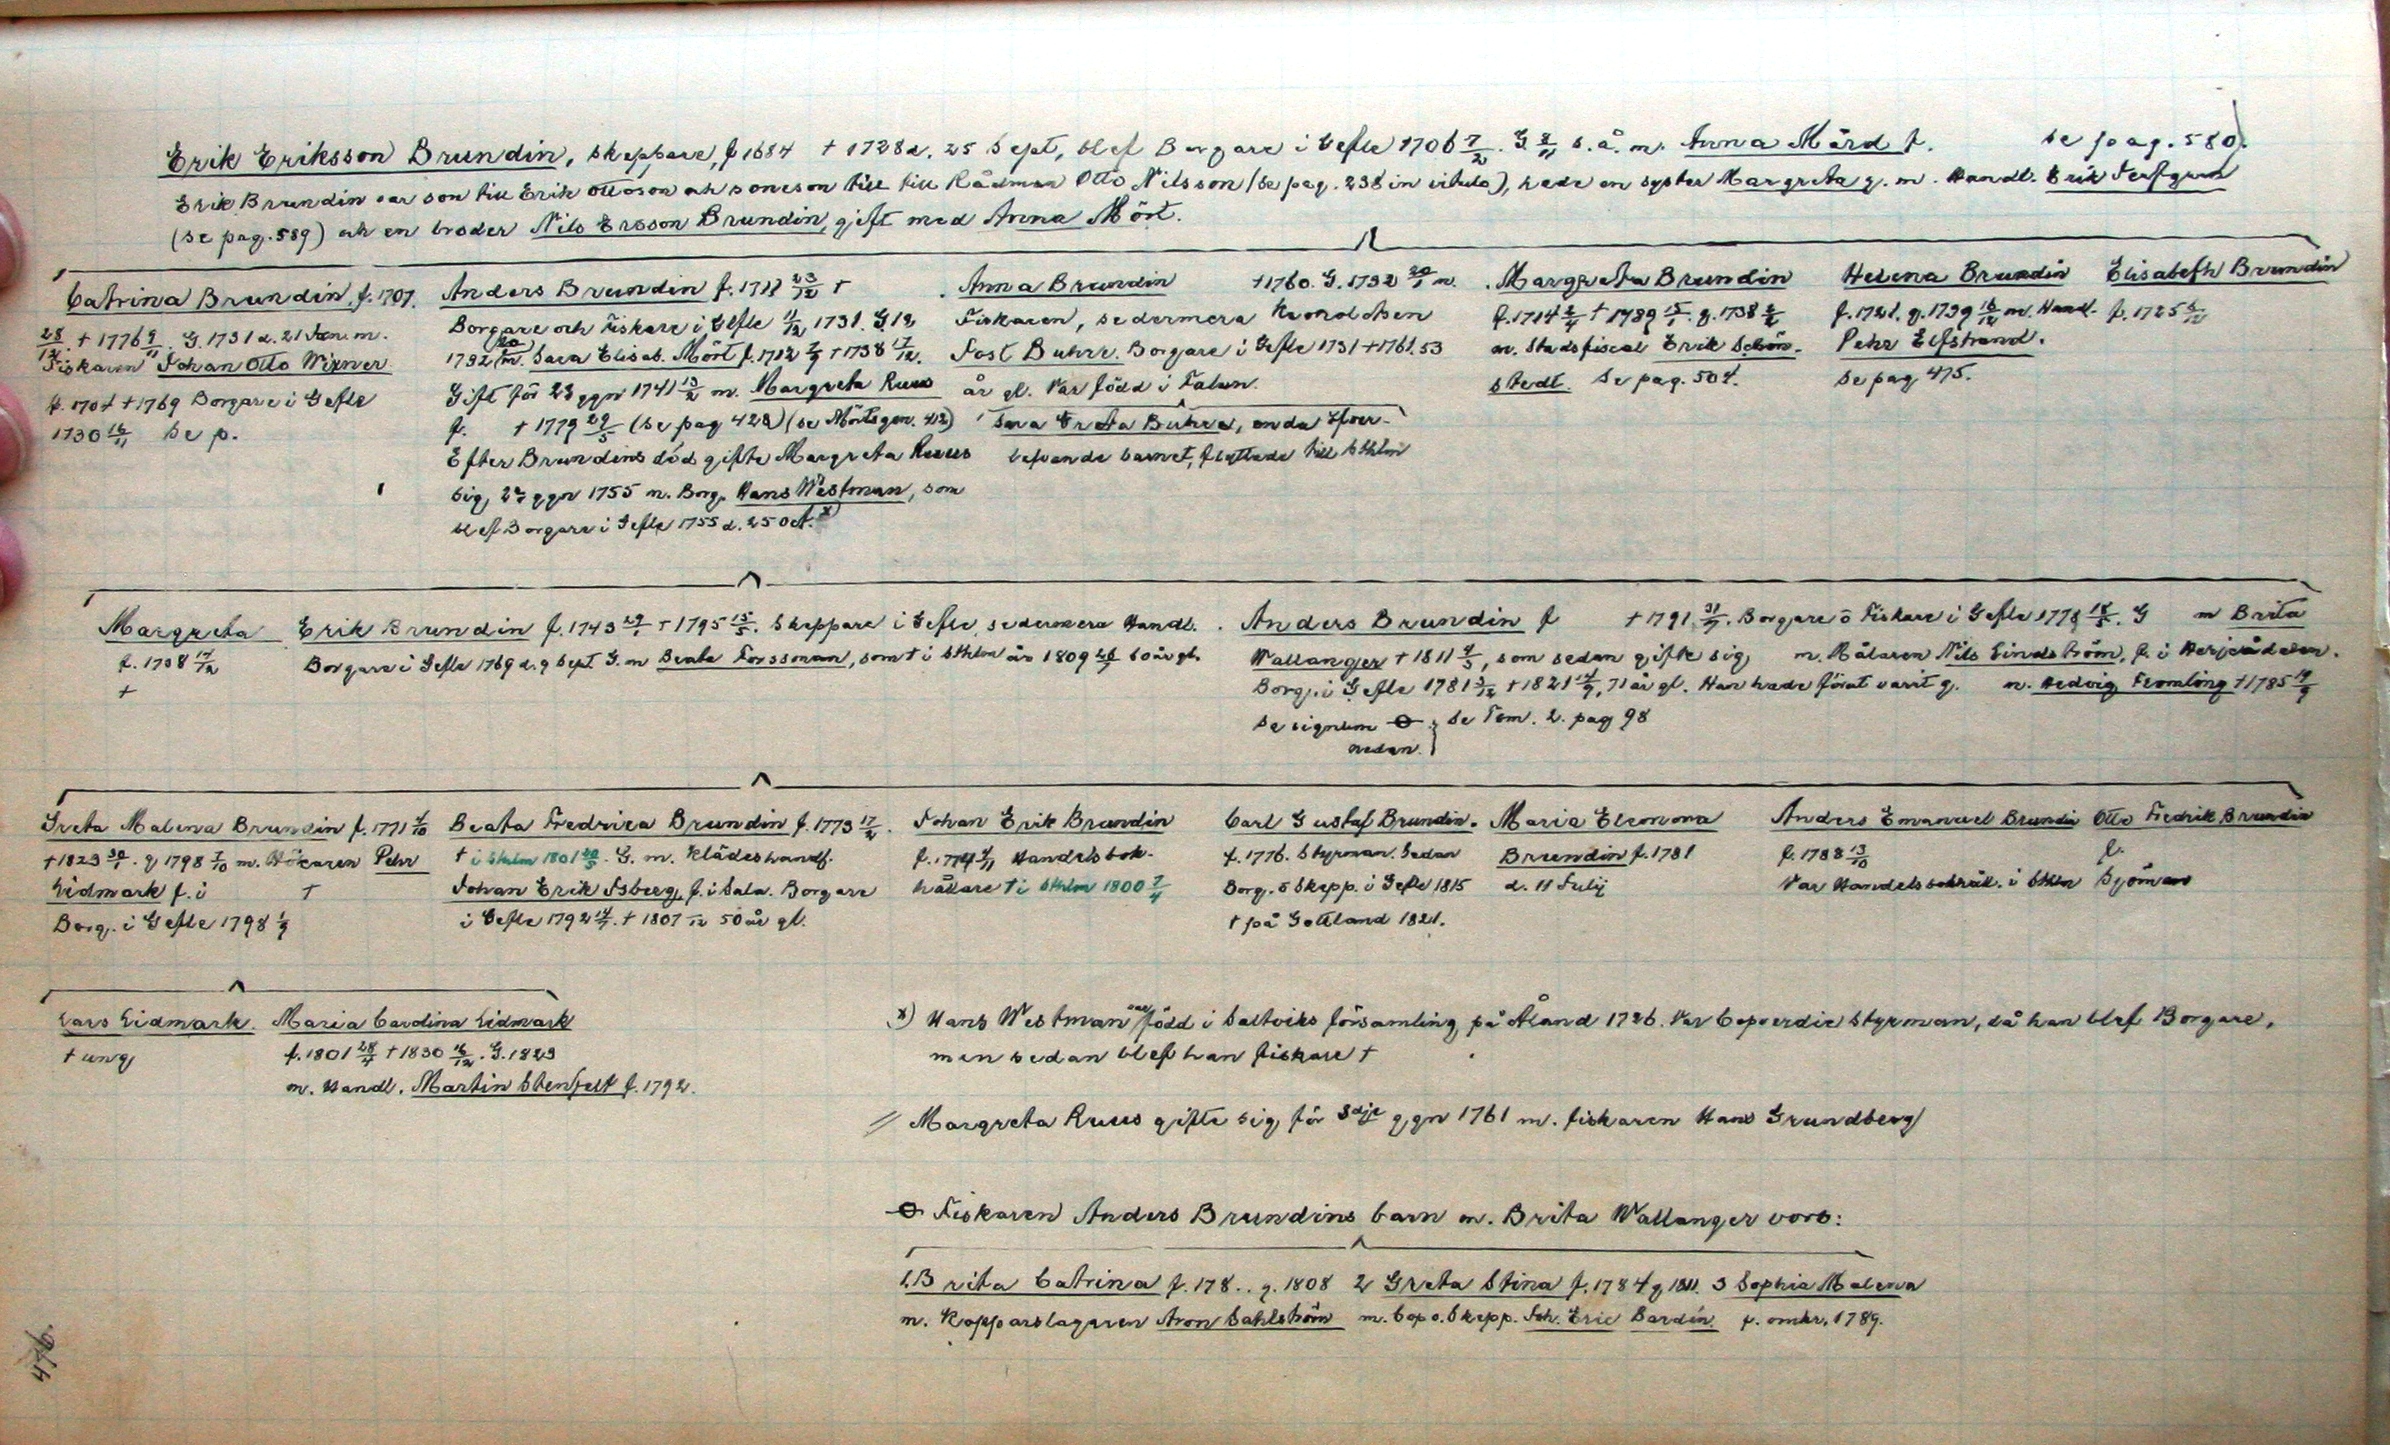 Erik Eriksson Brundin, skeppare, f 1684 † 1728 d. 25 Sept, blef Borgare i Gefle 1706 7/2 G. s. å. m. Anna Mård f. se pag. 580.
Erik Brundin var son till Erik Ottoson och soneson till till Rådman Otto Nilsson (se pag. 238 in titulo), hade en syster Margreta g. m. Handl. Erik
(se pag. 589) och en broder Nils Ersson Brundin, gift med Anna Mört.
Catrina Brundin, f. 1707.
28/12 † 1776 9/11 G. 1731 d. 21 Jan. m.
Fiskaren Johan Otto Wixner
f. 1704 † 1769 Borgare i Gefle
1730 16/11 Se p.
Anders Brundin f. 1711 23/12 †
Borgare och Fiskare i Gefle 11/12 1731. G 1°
1732 (20/) m. Sara Elisab. Mört f. 1712 7/9 † 1738 17/12.
Gift för 2a ggn 1741 13/2 m. Margreta Ruus
f. † 1779 29/5 (se pag 428) (se Mörts gen. 412)
Efter Brundins död gifte Margreta Ruus
sig 2a ggn 1755 m. Borg. Hans Westman, som
blef Borgare i Gefle 1755 d. 25 Oct. x)
Anna Brundin † 1760. G. 1732 20/1 m.
Fiskaren, sedermera
Jost Buhre. Borgare i Gefle 1731 † 1761. 53
år gl. Var född i Falun.
Sara Greta Buhre, enda öfver-
lefvande barnet, flyttade till Sthlm
Margreta Brundin
f. 1714 2/4 † 1789 15/1. g. 1738
m. Stadsfiscal Erik Schön-
stedt. Se pag. 504.
Helena Brundin
f. 1721. g. 1739 16/12 m. Handl.
Pehr Elfstrand.
Se pag 475.
Elisabeth Brundin
f. 1725 6/12
Margreta
f. 1738 17/12
†
Erik Brundin f. 1743 29/1 † 1795 15/5. Skeppare i Gefle, sedermera Handl.
Borgare i Gefle 1769 d. 9 Sept. G. m Beata Forssman, som † i Sthlm år 1809 60 år gl.
Anders Brundin f † 1791 31/7. Borgare o Fiskare i Gefle 1778 18/5. G m Brita
Wallanger † 1811 4/3, som sedan gifte sig m. Målaren Nils Lindström, f. i Herjeådalen.
Borg. i Gefle 1781 3/12 † 1821 14/9, 71 år gl. Han hade förut varit g. m. Hedvig Fromling † 1785 14/9
Se signum ⊖ nedan. } Se Tom. 2. pag 98
Greta Malena Brundin f. 1771 4/10
† 1823 30/1. g 1798 7/10 m. Hökaren Pehr
Lidmark f. i †
Borg. i Gefle 1798 1/9
Beata Fredrica Brundin f. 1773 17/2.
† i Sthlm 1801 20/5. G. m. Klädeshandl.
Johan Erik Isberg, f. i Sala. Borgare
i Gefle 1792 14/7. † 1807 /12 50 år gl.
Johan Erik Brundin
f. 1774 4/11 Handelsbok-
hållare † i Sthlm 1800 7/4
Carl Gustaf Brundin.
f. 1776. Styrman. Sedan
Borg. o Skepp. i Gefle 1815
† på Gottland 1821.
Maria Eleonora
Brundin f. 1781
d. 11 Julij
Anders Emanuel Brundin
f. 1788 13/10
Var Handelsbokhåll. i Sthlm
Otto Fredrik Brundin
f.
Sjöman
Lars Lidmark.
† ung
Maria Carolina Lidmark
f. 1801 28/4 † 1830 16/12. G. 1823
m. Handl. Martin Stenfelt f. 1792.
x) Hans Westman var född i Saltviks församling på Åland 1726. Var Copverdie Styrman, då han blef Borgare,
men sedan blef han fiskare †
// Margreta Ruus gifte sig för 3dje ggn 1761 m. fiskaren Hans Grundberg
⊖ Fiskaren Anders Brundins barn m. Brita Wallanger voro:
1. Brita Catrina f. 178.. g. 1808 2 Greta Stina f. 1784 g 1811. 3 Sophia Malena
m. Kopparslagaren Aron Sahlström m. Cop v. Skepp. Joh. Eric Bardin f. omkr. 1789.